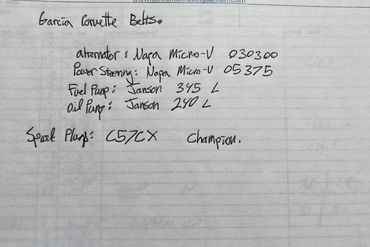 Garcia Corvette Belts.
alternator: Napa Micro-V 030300
Power Steering: Napa Micro-V 05375
Fuel Pump: Janson 345 L
Oil Pump: Janson 240 L
Spark Plugs: C57CX Champion.